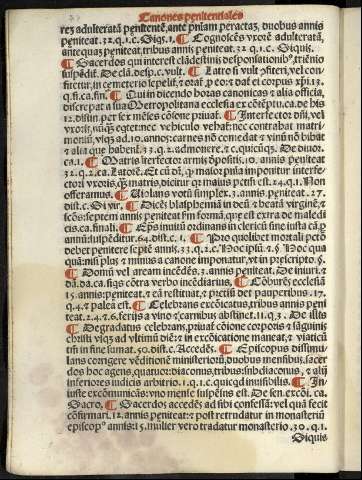 Canones penitentiales
rez adulteratã penitentē, ante pñiam peractaz, duobus annis
peniteat. 32. q. 1. c. Si qs. 1. ¶ Cognoscēs vxorē adulteratā,
ante quaz peniteat, tribus annis peniteat. 32. q. 1. c. Si quis.
¶ Sacerdos qui interest clādestinis desponsationib⁹, triēnio
suspēdif. De clā. desp. c. vult. ¶ Latro si vult ꝓfiteri, vel con
fitetur, in cemeterio sepelif,
q. fi. ca. fin. ¶ Qui in dicendo horas canonicas ⁊ alia officia,
discrepat a sua Metropolitana ecclesia
12. distin. per sex mēses cōione priuat. ¶ Interfector dñi, vel
vxoris, nūq̃ę eqtet nec vehiculo vehat: nec contrabat matri
moniū, vsqz ad. 10. annos: carnes nō comedat ⁊ vinū nō bibat
⁊ alia que habent. 33. q. 2. admonere. ⁊ c. quicūqs. De diuor.
ca. 1. ¶ Matris iterfector armis dpositis. 10. annis peniteat
32. q. 2. ca. Latorē. Et cū dr, q̃ maior pñia imponitur interfe-
ctori vxoris, q̃ʒ matris, dicitur qz maius pctm est. 24. q. 1. Non
offeramus. ¶ Violans votū simplex. 3. annis peniteat. 27.
dist. c. Si vir. ¶ Dicēs blasphemiā in deū ⁊ beatā virginē, ⁊
scōs: septem annis peniteat fm formā, que est extra de maledi
cis. ca. finali. ¶ Eps inuitū ordinans in clericū sine iusta cā, ꝑ
annū suspēditur. 64. dist. c. 1. ¶ Pro quolibet mortali pctō
debet penitere septē annis. 33. q. 2. c. Hoc ipsū. ⁊. §. Hec qua
quā: nisi plus ⁊ minus a canone imponatur, vt in prescripto. §.
¶ Domū vel aream incēdēs. 3. annis peniteat. De iniur. ⁊
dā. da. ca. si qs cōtra verbo incēdiarius. ¶ Cōburēs ecclesiā
15. annis: peniteat, ⁊ eā restituat, ⁊ preciū det pauperibus. 17.
q. 4. ⁊ palea est. ¶ Celebrans excōicatus, tribus annis peni
teat. 2. 4. ⁊. 6. ferijs a vino ⁊ carnibus abstinet. 11. q. 3. De illis
¶ Degradatus celebrans, priuat cōione corporis ⁊ sāguinis
christi vsqz ad vltimū diē: ⁊ in excōicatione maneat, ⁊ viaticū
tm in fine sumat. 50. dist. c. Accedēs. ¶ Episcopus dissimu
lans corrigere reditionē ministerioꝝ, duobus mensibus, sacer
dos hoc agens, quatuor: diaconus, tribus: subdiaconus, ⁊ alij
inferiores iudicis arbitrio. 11. q. 1. c. quicqd inuisibilis. ¶ In-
iuste excōmunicās: vno mense suspēsus est. De sen. excōi. ca.
Sacro, ¶ Sacerdos accedēs ad sibi confessam: vel qua fecit
cōfirmari. 12. annis peniteat: ⁊ post retrudatur in monasteriū
episcop⁹ annis: 15. mulier vero tradatur monasterio. 30. q. 1.
Si quis